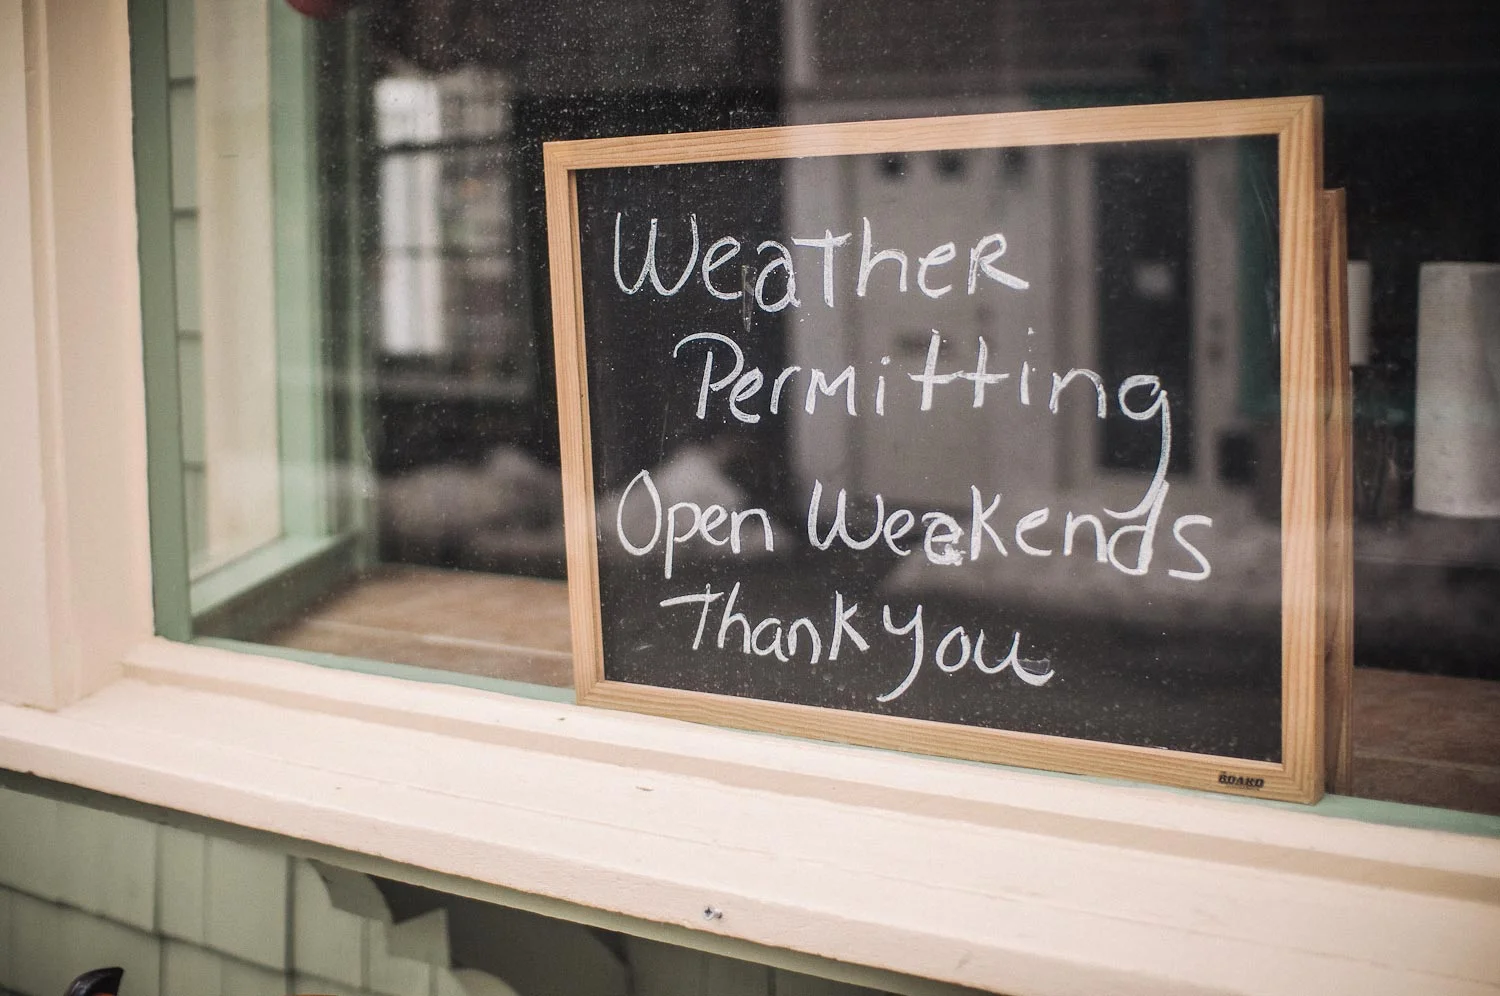 Weather
Permitting
Open Weekends
Thank you
BOARD